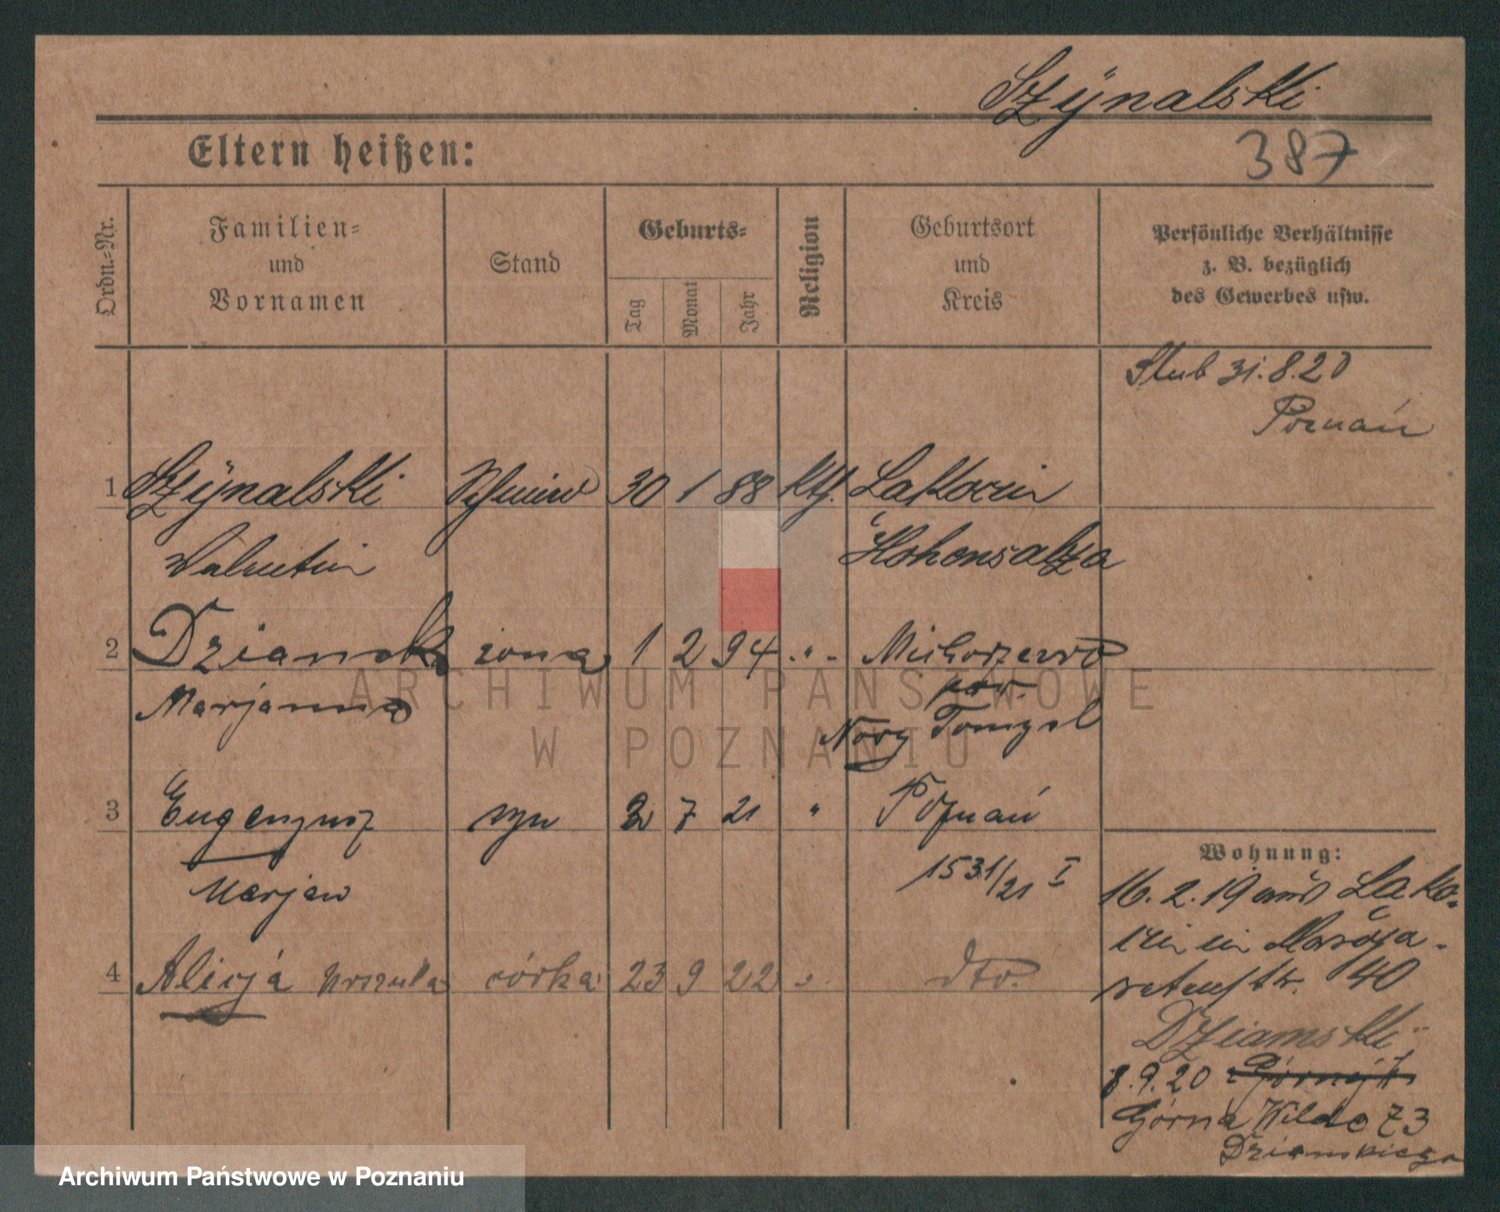 Szÿnalski
387
Eltern heißen:
Ordn.-Nr.
Familien- und Vornamen
Stand
Geburts-
Tag
Monat
Jahr
Religion
Geburtsort und Kreis
Persönliche Verhältnisse z. B. bezüglich des Gewerbes usw.
Ślub 31.8.20
Poznań
1 Szÿnalski 30 1 88 kth. Lakocin
Valentin Hohensalza
2 żona 1 2 94 " Michorzewo
Marjanna pow.
Nowy Tomysl
3 Eugenjusz syn 2 7 21 " Poznań
Marjan 1531/21 I
4 Alicja Urszula córka 23 9 22 " dto.
Wohnung:
16.2.19 aus Lako-
cin in
40
Dziamski
8.9.20 Górna
Górna Wilda 73
Dziamskiego
ARCHIWUM PAŃSTWOWE
W POZNANIU
Archiwum Państwowe w Poznaniu